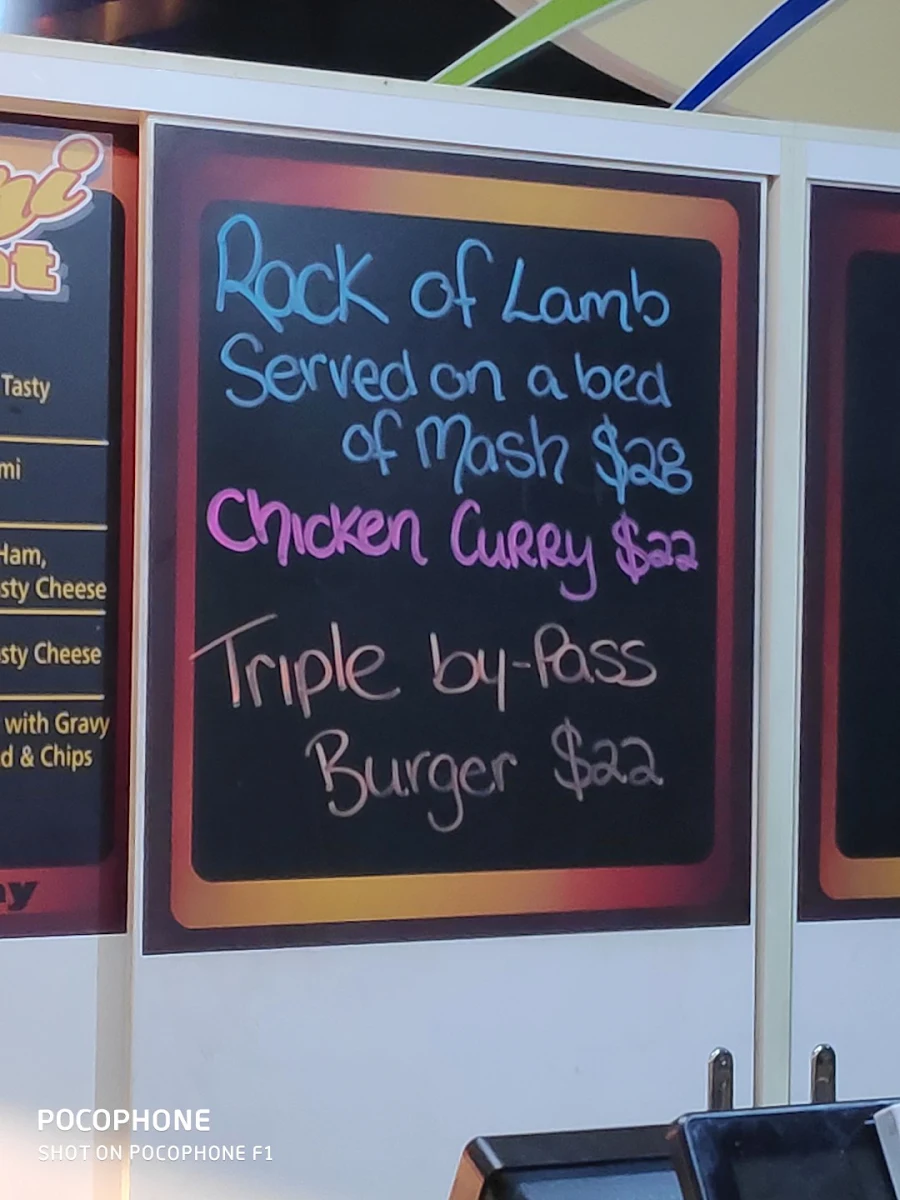 Rack of Lamb
Served on a bed
of Mash $28
Chicken CURRY $22
Triple by-Pass
Burger $22
Tasty
Ham,
Cheese
Cheese
with Gravy
& Chips
POCOPHONE
SHOT ON POCOPHONE F1